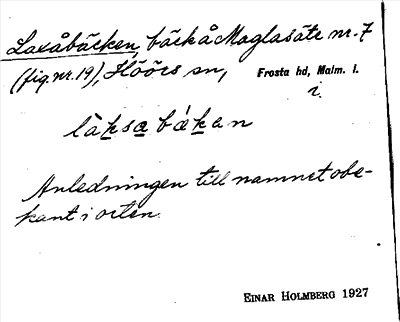 Laxåbäcken, bäck å Maglasäte nr. 7
(fig. nr. 19), Höörs sn, Frosta hd, Malm. l.
i.
làksa bǽken
Anledningen till namnet obe-
kant i orten.
EINAR HOLMBERG 1927